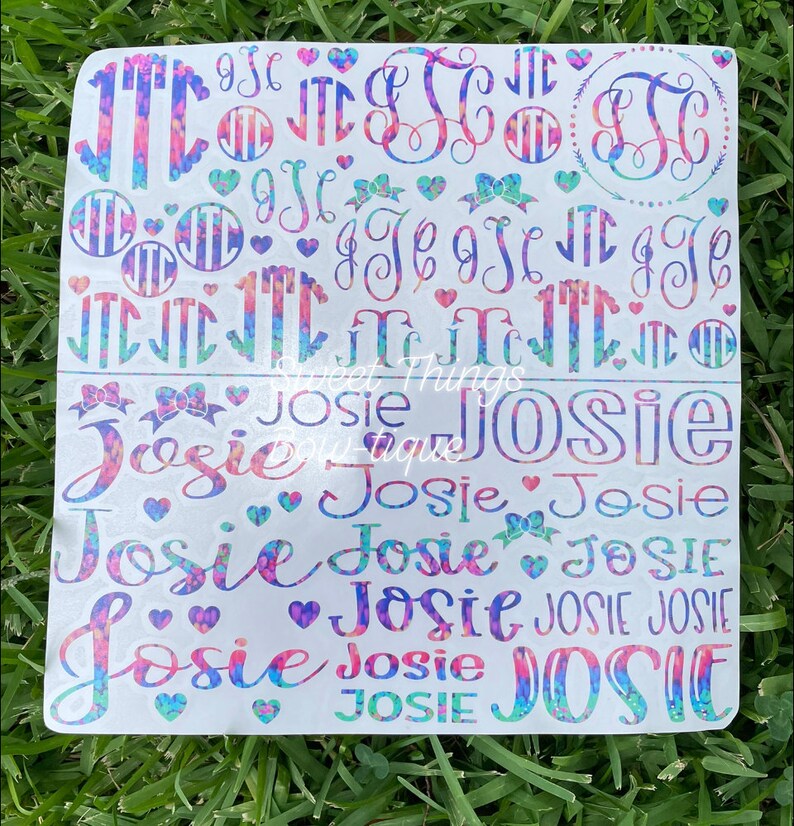 JTC JTC JTC JTC JTC JTC
JTC JTC
JTC JTC
JTC JTC JTC JTC JTC JTC
JTC
JTC JTC JTC JTC JTC JTC JTC JTC
Sweet Things
Josie Josie
Bow-tique
Josie
Josie Josie
Josie Josie JOSIE
Josie JOSIE JOSIE
Josie Josie JOSIE
JOSIE